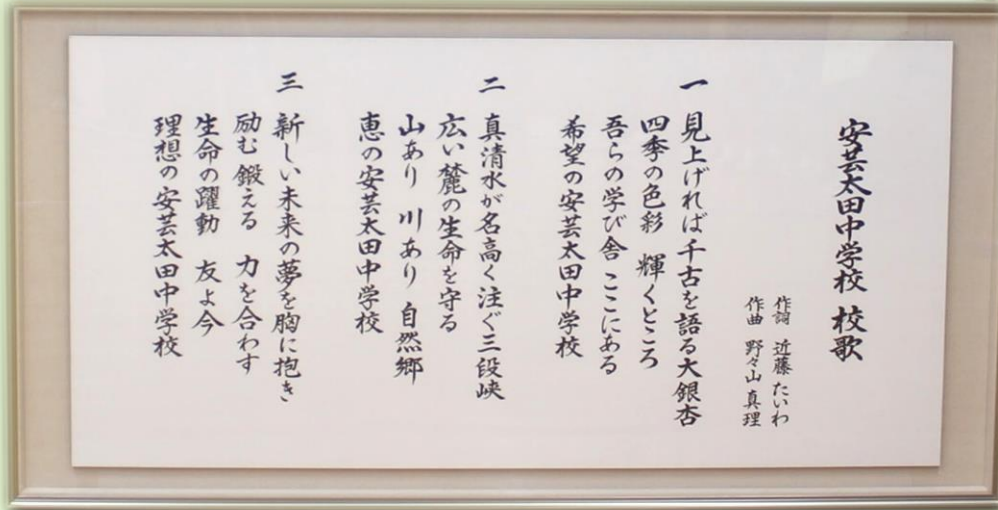 安芸太田中学校 校歌
作詞 近藤 たいわ
作曲 野々山 真理
一 見上げれば千古を語る大銀杏
四季の色彩 輝くところ
吾らの学び舎 ここにある
希望の安芸太田中学校
二 真清水が名高く注ぐ三段峡
広い麓の生命を守る
山あり 川あり 自然郷
恵の安芸太田中学校
三 新しい未来の夢を胸に抱き
励む 鍛える 力を合わす
生命の躍動 友よ今
理想の安芸太田中学校